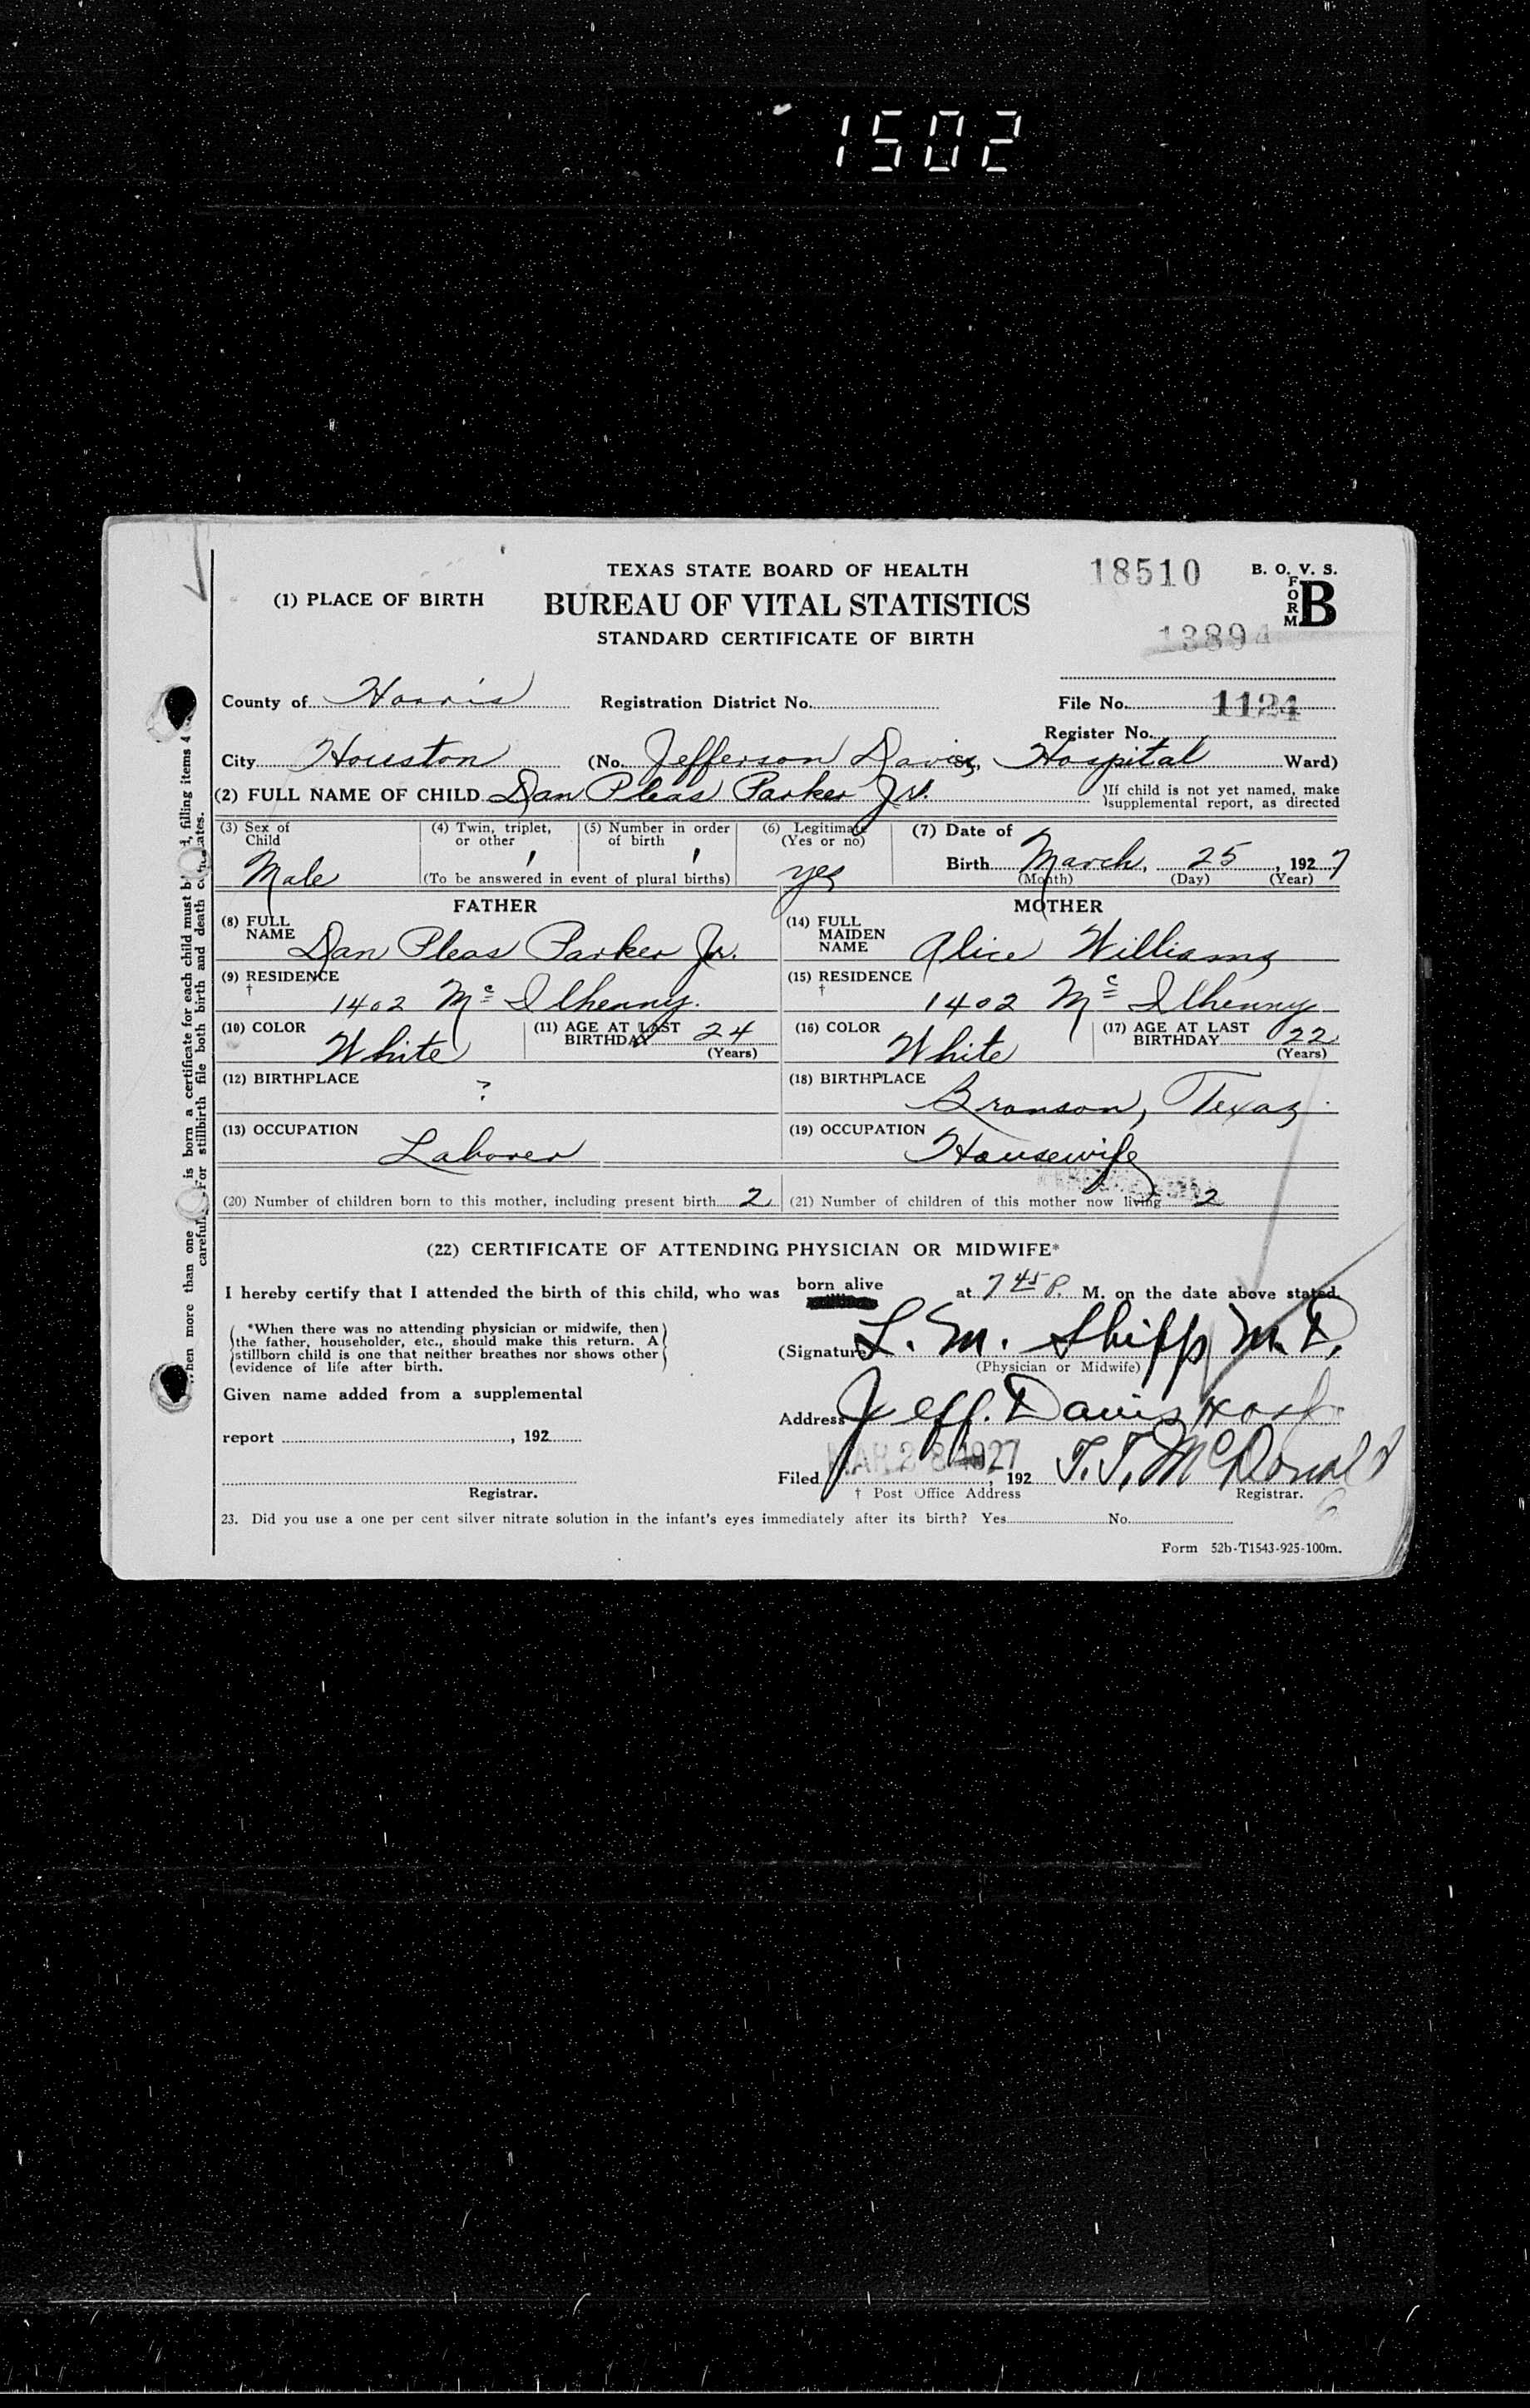 1502
TEXAS STATE BOARD OF HEALTH
18510
B. O. V. S.
FORM B
(1) PLACE OF BIRTH
BUREAU OF VITAL STATISTICS
STANDARD CERTIFICATE OF BIRTH
13894
County of Harris Registration District No. File No. 1124
Register No.
City Houston (No. Jefferson Davis St., Hospital Ward)
(2) FULL NAME OF CHILD Dan Pleas Parker Jr. If child is not yet named, make
supplemental report, as directed
(3) Sex of Child Male
(4) Twin, triplet, or other
(5) Number in order of birth
(To be answered in event of plural births)
(6) Legitimate (Yes or no) yes
(7) Date of
Birth March, 25, 1927
(Month) (Day) (Year)
FATHER
(8) FULL NAME Dan Pleas Parker Jr.
(9) RESIDENCE † 1402 Mc Ilhenny.
(10) COLOR White
(11) AGE AT LAST BIRTHDAY 24 (Years)
(12) BIRTHPLACE ?
(13) OCCUPATION Laborer
MOTHER
(14) FULL MAIDEN NAME Alice Williams
(15) RESIDENCE † 1402 Mc Ilhenny
(16) COLOR White
(17) AGE AT LAST BIRTHDAY 22 (Years)
(18) BIRTHPLACE Bronson, Texas
(19) OCCUPATION Housewife
(20) Number of children born to this mother, including present birth 2
(21) Number of children of this mother now living 2
(22) CERTIFICATE OF ATTENDING PHYSICIAN OR MIDWIFE*
I hereby certify that I attended the birth of this child, who was born alive at 7 45 P. M. on the date above stated.
*When there was no attending physician or midwife, then
the father, householder, etc., should make this return. A
stillborn child is one that neither breathes nor shows other
evidence of life after birth.
(Signature) L. M. Shipp M.D.
(Physician or Midwife)
Given name added from a supplemental
report , 192
Registrar.
Address Jeff. Davis Hosp
Filed MAR 28 1927, 192 T. T. McDonald
† Post Office Address Registrar.
23. Did you use a one per cent silver nitrate solution in the infant's eyes immediately after its birth? Yes No
Form 52b-T1543-925-100m.
hen more than one is born a certificate for each child must b d, filling items 4
careful For stillbirth file both birth and death